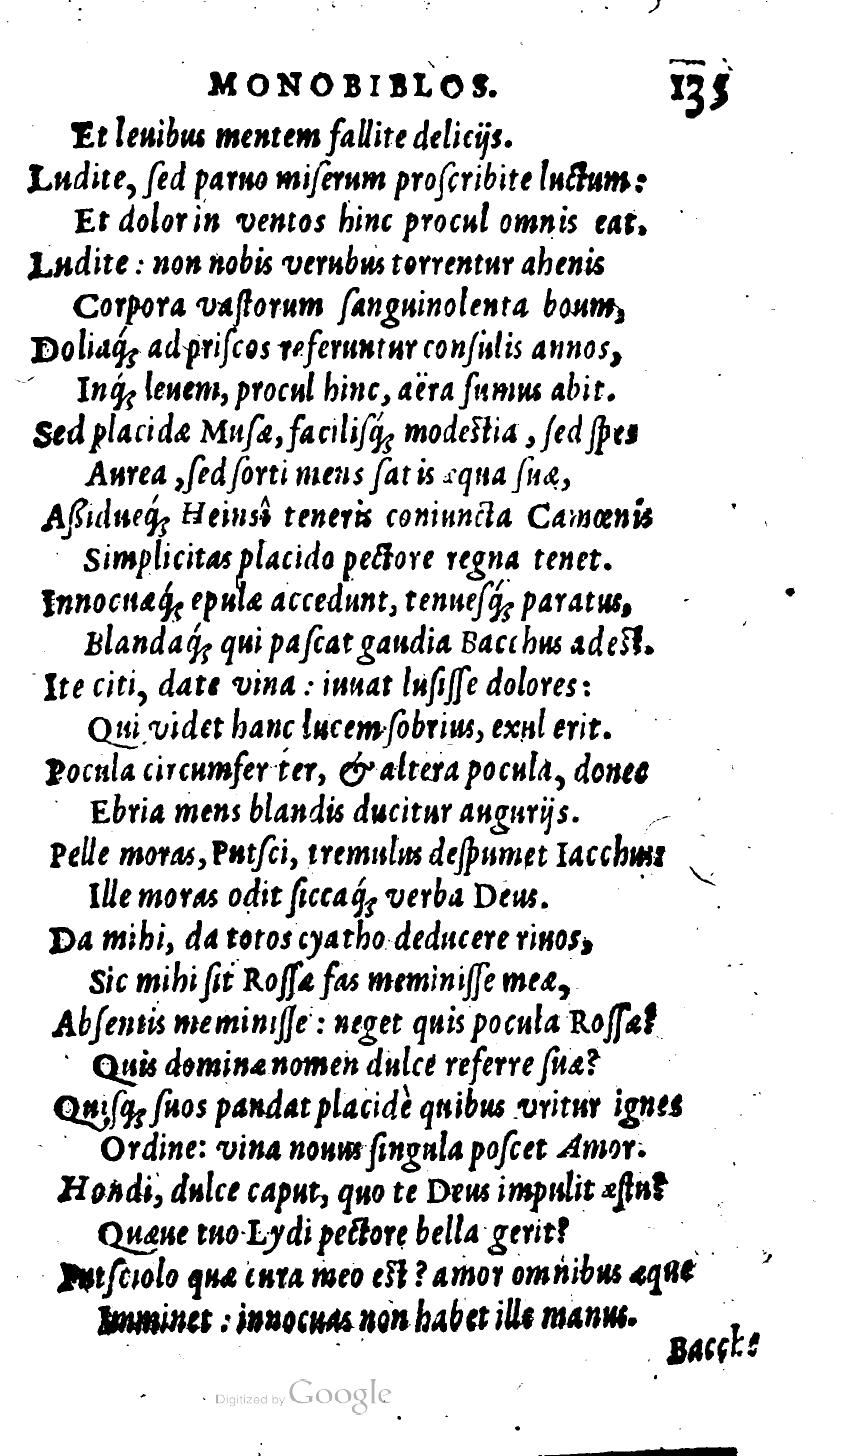 MONOBIBLOS. 135
Et leuibus mentem fallite delicijs.
Ludite, ſed paruo miſerum proſcribite luctum:
Et dolor in ventos hinc procul omnis eat.
Ludite: non nobis verubus torrentur ahenis
Corpora vaſtorum ſanguinolenta boum,
Doliaq́; ad priſcos referuntur conſulis annos,
Inq́; leuem, procul hinc, aëra fumus abit.
Sed placidæ Muſæ, faciliſq́; modeſtia, ſed ſpes
Aurea, ſed ſorti mens ſat is æqua ſuæ,
Aſſidueq́; Heinsî teneris coniuncta Camœnis
Simplicitas placido pectore regna tenet.
Innocuæq́; epulæ accedunt, tenueſq́; paratus,
Blandaq́; qui paſcat gaudia Bacchus adeſt.
Ite citi, date vina: iuuat luſiſſe dolores:
Qui videt hanc lucem ſobrius, exul erit.
Pocula circumfer ter, & altera pocula, donec
Ebria mens blandis ducitur augurijs.
Pelle moras, Putſci, tremulus deſpumet Iacchus:
Ille moras odit ſiccaq́; verba Deus.
Da mihi, da totos cyatho deducere riuos,
Sic mihi ſit Roſſæ fas meminiſſe meæ,
Abſentis meminiſſe: neget quis pocula Roſſæ?
Quis dominæ nomen dulce referre ſuæ?
Quiſq; ſuos pandat placidè quibus vritur ignes
Ordine: vina nouus ſingula poſcet Amor.
Hondi, dulce caput, quo te Deus impulit æſtu?
Quæue tuo Lydi pectore bella gerit?
Putſciolo quæ cura meo eſt? amor omnibus æque
Imminet: innocuas non habet ille manus.
Bacche
Digitized by Google